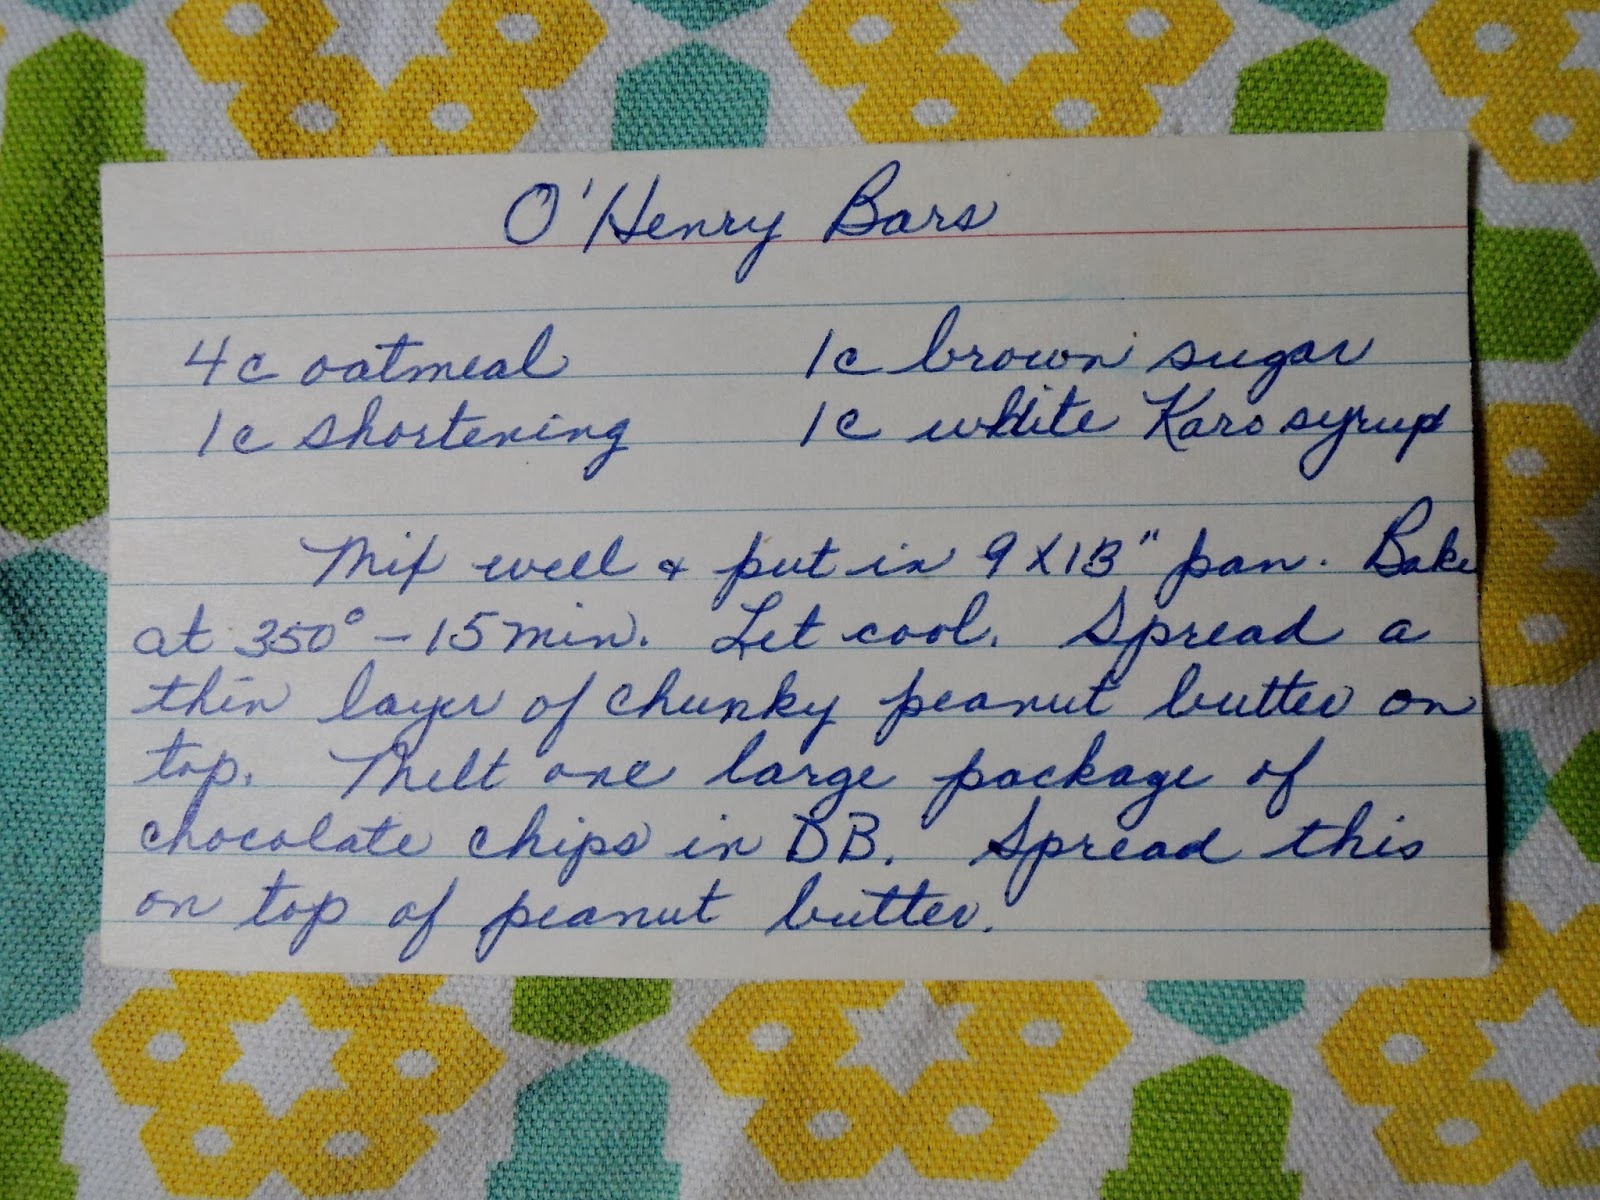 O'Henry Bars
4c oatmeal 1c brown sugar
1c shortening 1c white Karo syrup
Mix well & put in 9 X 13" pan. Bake
at 350° - 15 min. Let cool. Spread a
thin layer of chunky peanut butter on
top. Melt one large package of
chocolate chips in DB. Spread this
on top of peanut butter.